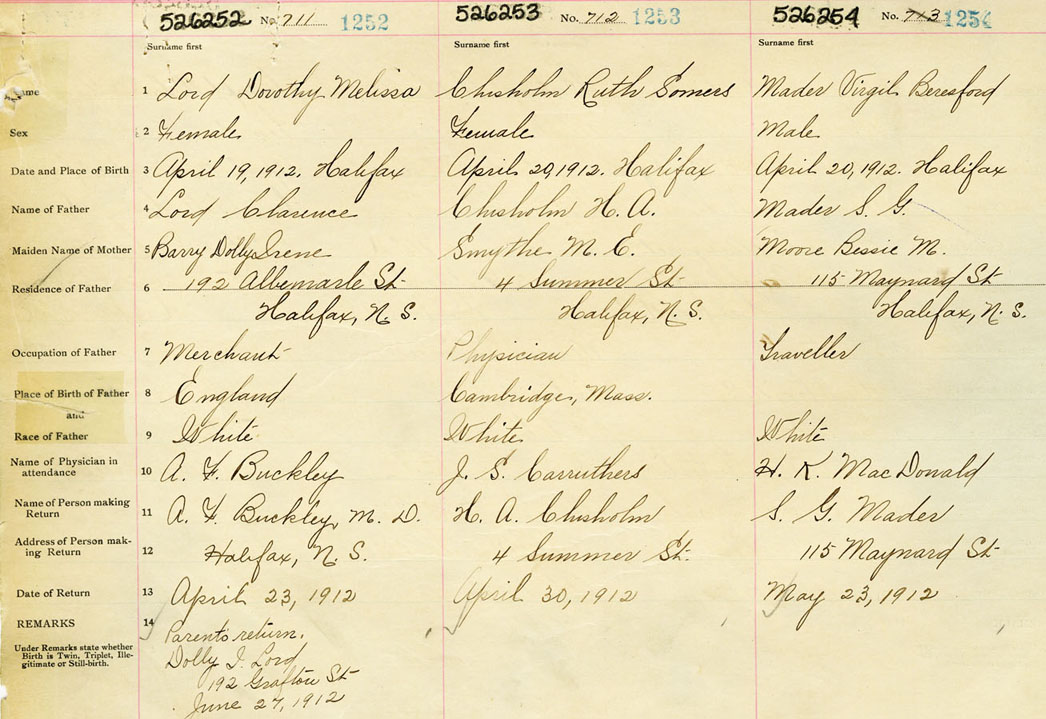 526252 No. 711 1252 526253 No. 712 1253 526254 No. 713 1254
Surname first Surname first Surname first
Name 1 Lord Dorothy Melissa Chisholm Ruth Somers Mader Virgil Beresford
Sex 2 Female Female Male
Date and Place of Birth 3 April 19, 1912. Halifax April 20, 1912. Halifax April 20, 1912. Halifax
Name of Father 4 Lord Clarence Chisholm H. A. Mader S. G.
Maiden Name of Mother 5 Barry Dolly Irene Smythe M. E. Moore Bessie M.
Residence of Father 6 192 Albemarle St. 4 Summer St. 115 Maynard St
Halifax, N. S. Halifax, N. S. Halifax, N. S.
Occupation of Father 7 Merchant Physician Traveller
Place of Birth of Father 8 England Cambridge, Mass.
and
Race of Father 9 White White White
Name of Physician in
attendance 10 A. F. Buckley J. S. Carruthers H. K. MacDonald
Name of Person making
Return 11 A. F. Buckley, M. D. H. A. Chisholm S. G. Mader
Address of Person mak-
ing Return 12 Halifax, N. S. 4 Summer St. 115 Maynard St
Date of Return 13 April 23, 1912 April 30, 1912 May 23, 1912
REMARKS 14 Parents return.
Under Remarks state whether
Birth is Twin, Triplet, Ille-
gitimate or Still-birth.
Dolly I. Lord
192 Grafton St
June 27, 1912